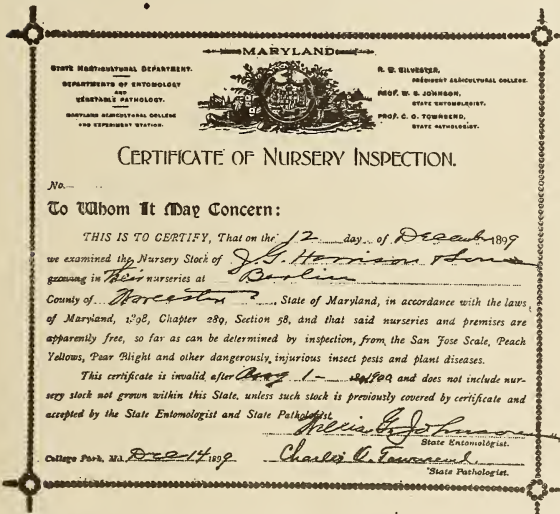 MARYLAND
STATE HORTICULTURAL DEPARTMENT.
DEPARTMENTS OF ENTOMOLOGY
AND
VEGETABLE PATHOLOGY.
MARYLAND AGRICULTURAL COLLEGE
AND EXPERIMENT STATION.
R. W. SILVESTER,
PRESIDENT AGRICULTURAL COLLEGE.
PROF. W. G. JOHNSON,
STATE ENTOMOLOGIST.
PROF. C. O. TOWNSEND,
STATE PATHOLOGIST.
CERTIFICATE OF NURSERY INSPECTION.
No.
To Whom It May Concern:
THIS IS TO CERTIFY, That on the 12 day of December 1899
we examined the Nursery Stock of J. G. Harrison & Sons
growing in their nurseries at Berlin
County of Worcester, State of Maryland, in accordance with the laws
of Maryland, 1898, Chapter 289, Section 58, and that said nurseries and premises are
apparently free, so far as can be determined by inspection, from the San Jose Scale, Peach
Yellows, Pear Blight and other dangerously injurious insect pests and plant diseases.
This certificate is invalid after Aug 1- 1900 and does not include nur-
sery stock not grown within this State, unless such stock is previously covered by certificate and
accepted by the State Entomologist and State Pathologist.
Willis G. Johnson
State Entomologist.
College Park, Md. Dec 14 1899
Charles O. Townsend
State Pathologist.